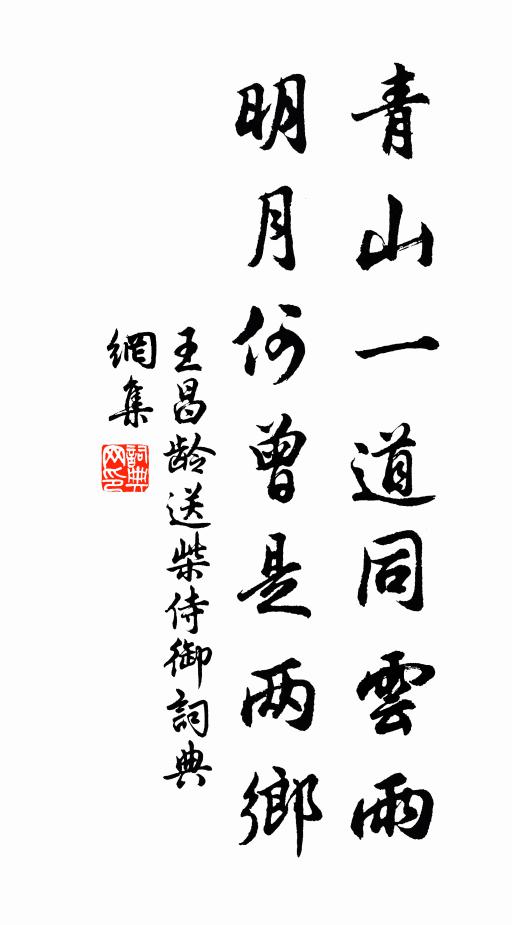 青山一道同雲雨
明月何曾是两鄉
王昌龄送柴侍御詞典
網集
詞典
网印